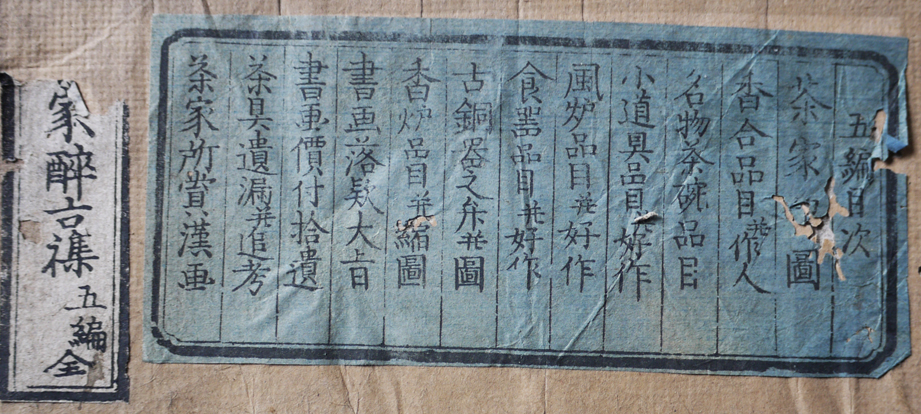 五編目次
茶家圖
香合品目并作人
名物茶碗品目
小道具品目并好作
風炉品目并好作
食器品目并好作
古銅器之弁并圖
香炉品目并縮圖
書画落款大旨
書画價付拾遺
茶具遺漏并追考
茶家所賞漢画
家醉古襍
五編全